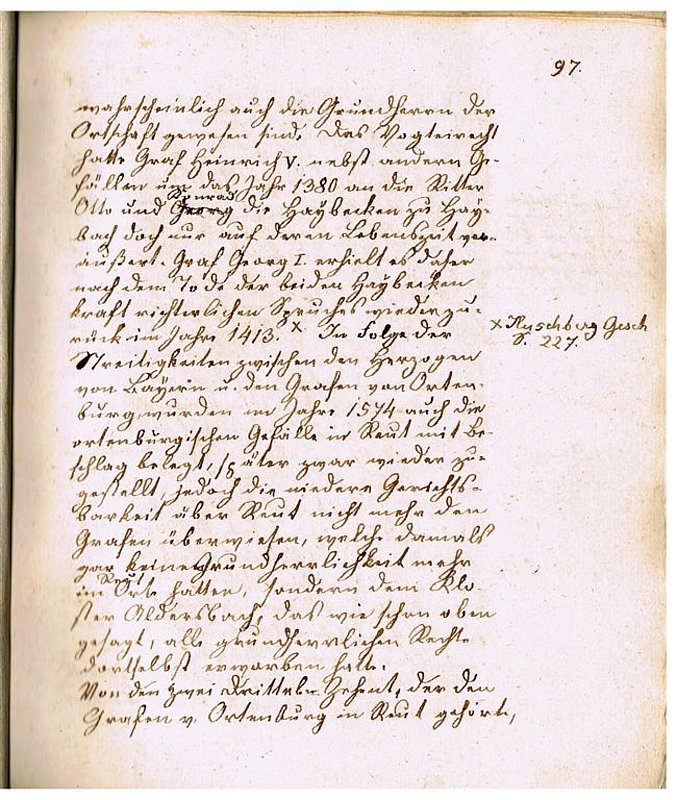 97.
wahrscheinlich auch die Grundherrn der
Ortschaft gewesen sind. Das Vogteirecht
hatte Graf Heinrich V. nebst andern Ge-
fällen um das Jahr 1380 an die Ritter
Konrad
Otto und Georg die Haybecken zu Hay-
bach doch nur auf deren Lebenszeit ver-
äußert. Graf Georg I. erhielt es daher
nach dem Tode der beiden Haybecken
kraft richterlichen Spruches wieder zu-
rück im Jahre 1413. x. In Folge der
x Huschberg Gesch
S. 227.
Streitigkeiten zwischen den Herzogen
von Bayern u. den Grafen von Orten-
burg wurden im Jahre 1574 auch die
ortenburgischen Gefälle in Reut mit Be-
schlag belegt, später zwar wieder zu-
gestellt, jedoch die niedere Gerichts-
barkeit über Reut nicht mehr den
Grafen überwiesen, welche damals
gar keine Grundherrlichkeit mehr
Reut
im Orte hatten, sondern dem Klo-
ster Aldersbach, das wie schon oben
gesagt, alle grundherrlichen Rechte
dortselbst erworben hatte.
Von den zwei Drittel Zehent, der den
Grafen v. Ortenburg in Reut gehörte,